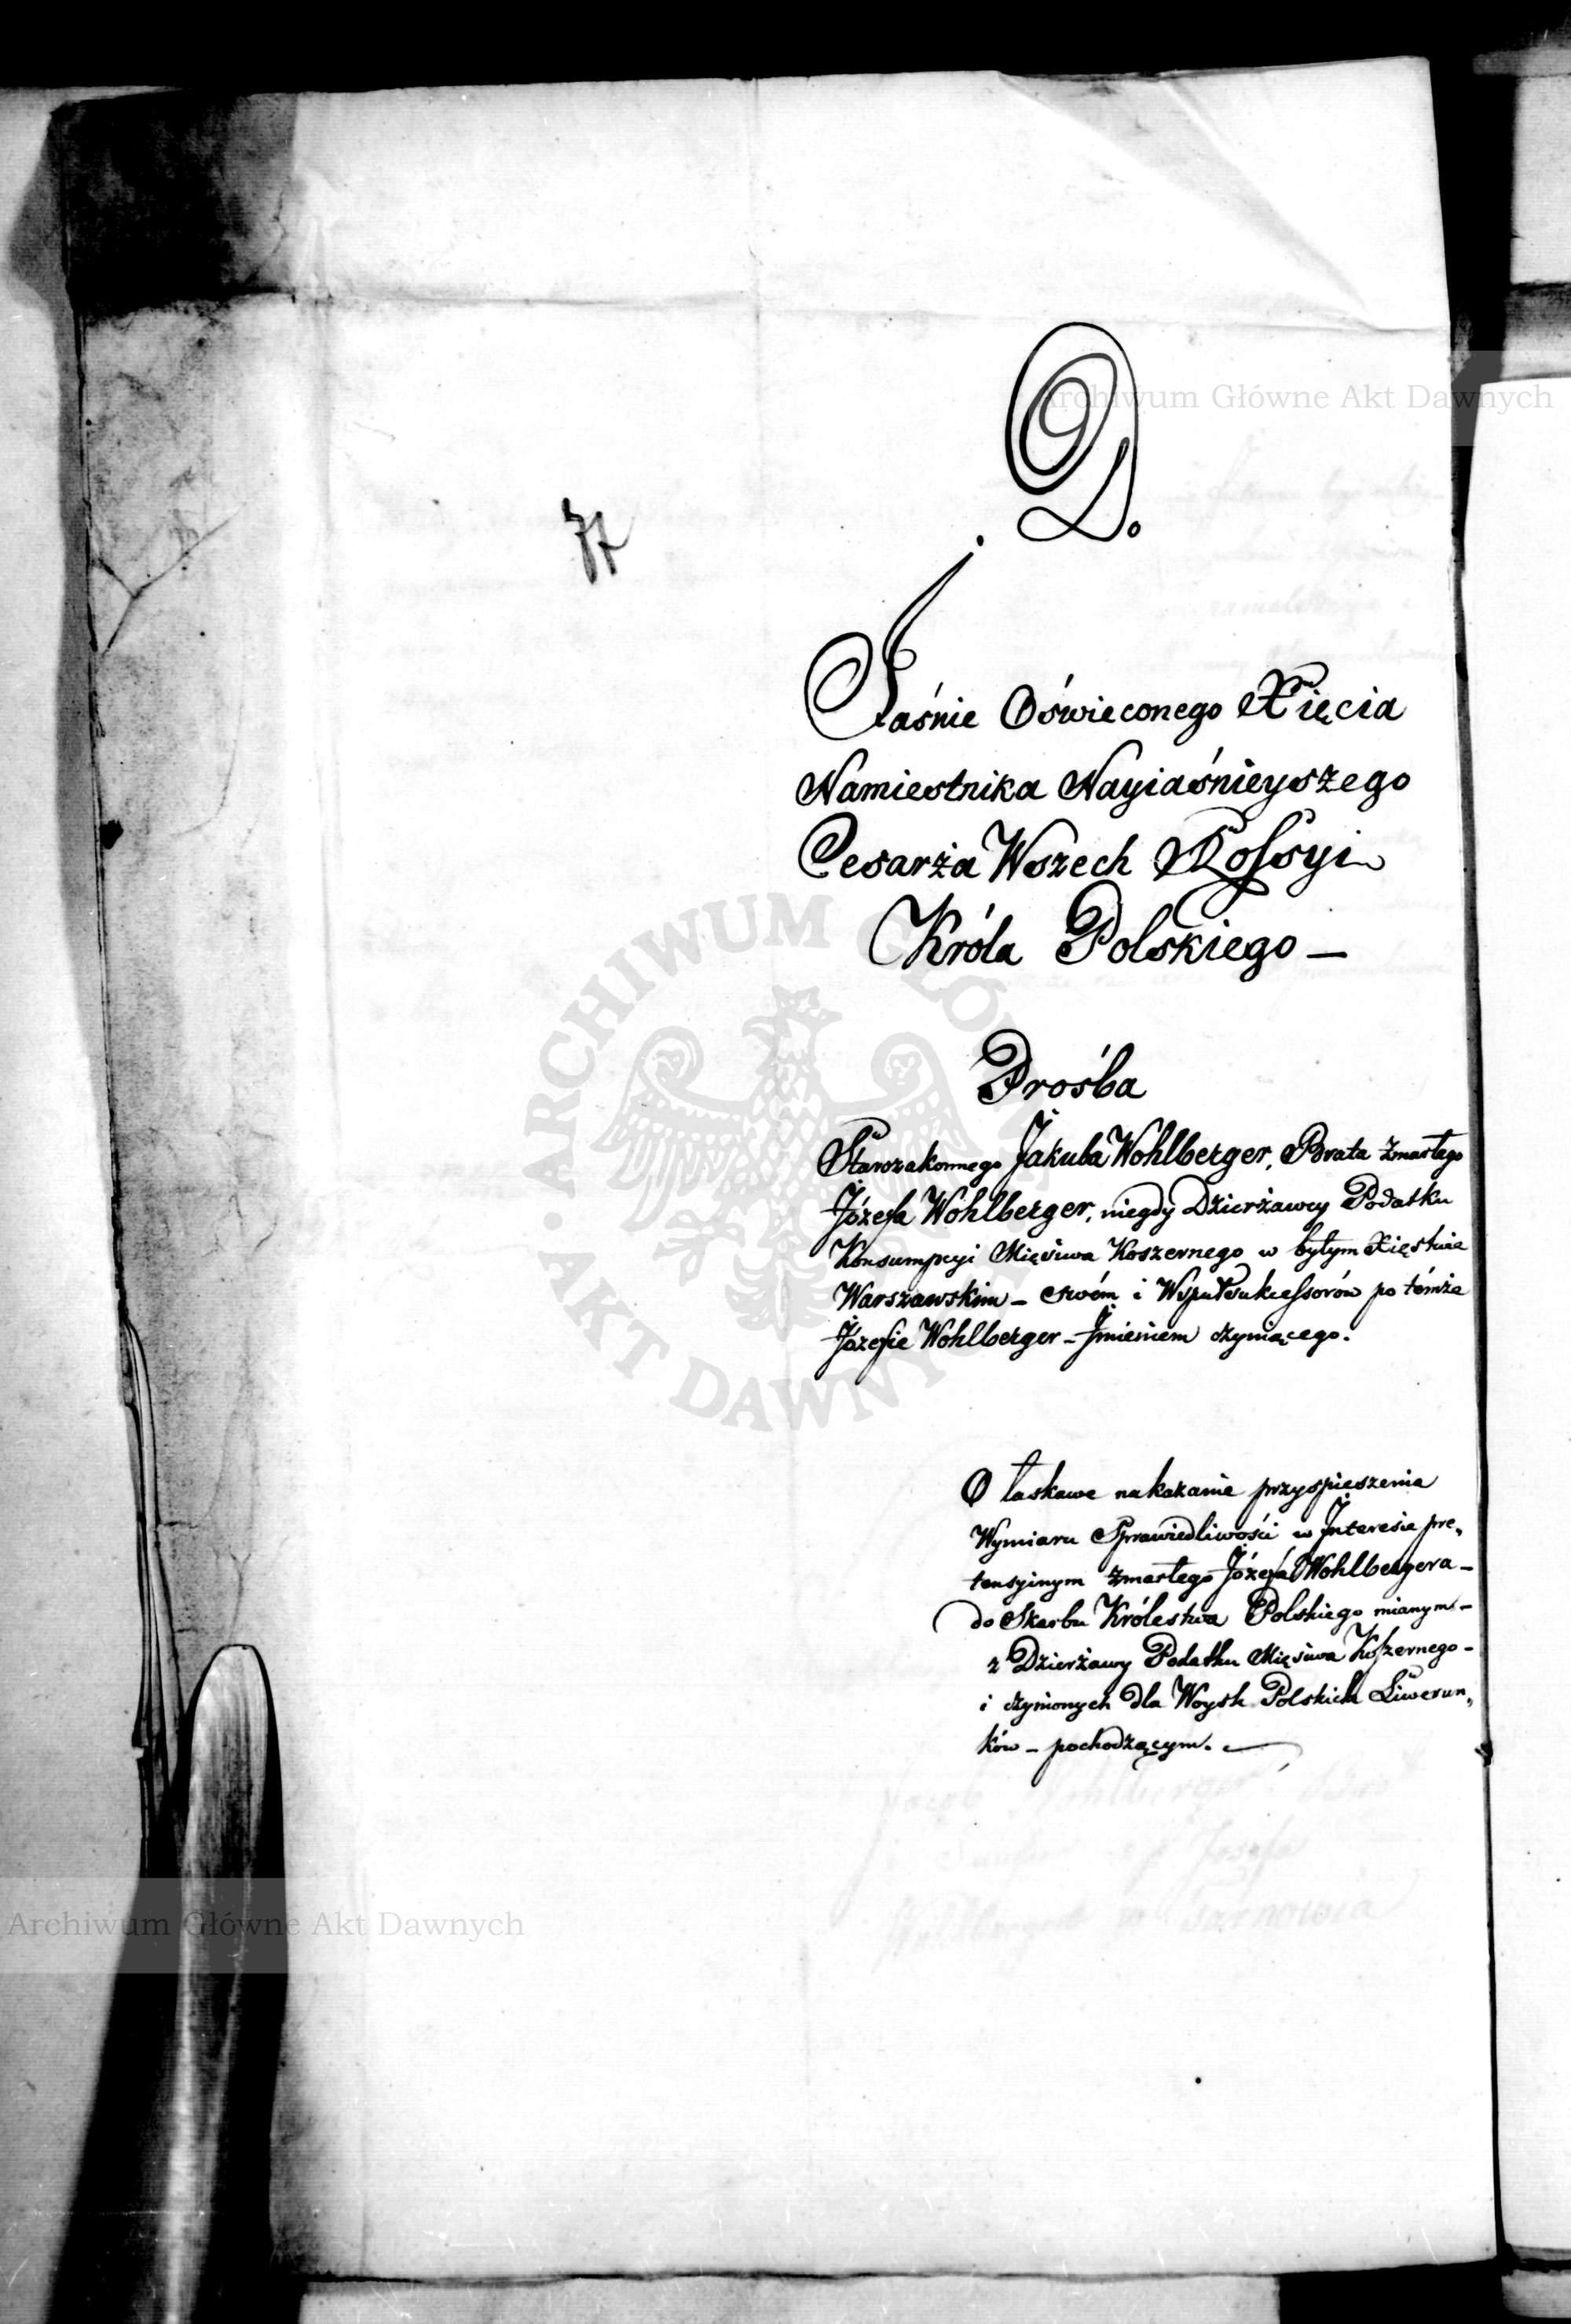 D.
Archiwum Główne Akt Dawnych
Jaśnie Oświeconego Xięcia
Namiestnika Nayiaśnieyszego
Cesarża Wszech Rossyi
Króla Polskiego —
Prośba
Starozakonnego Jakuba Wohlberger, Brata zmarłego
Józefa Wohlberger, niegdy Dzierżawcy Podatku
Konsumpcyi Mięsiwa Koszernego w byłym Xięstwie
Warszawskim – swém i Wspułsukcessorów po témże
Józefie Wohlberger – Jmieniem czyniącego.
O łaskawe nakazanie przyspieszenia
Wymiaru Sprawiedliwości w Jnteresie pre„
tensyinym zmarłego Józefa Wohlbergera –
do Skarbu Królestwa Polskiego mianym –
z Dzierżawy Podatku Mięsiwa Koszernego –
i czynionych dla Woysk Polskich Liwerun„
ków – pochodzącym.
ARCHIWUM GŁÓWNE AKT DAWNYCH
Archiwum Główne Akt Dawnych